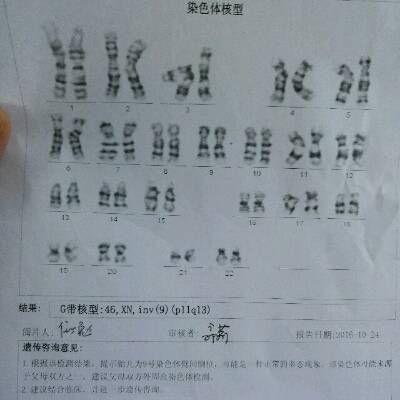 染色体核型
1 2 3 4 5
6 7 8 9 10 11 12
13 14 15 16 17 18
19 20 21 22
结果: G带核型:46,XN,inv(9)(p11q13)
阅片人: 审核者: 报告日期:2016-10-24
遗传咨询意见:
1.根据该检测结果,提示胎儿为9号染色体臂间倒位,可能是一种正常的多态现象,该染色体可能来源
于父母双方之一,建议父母双方外周血染色体检测。
2.建议结合临床,并进一步遗传咨询。